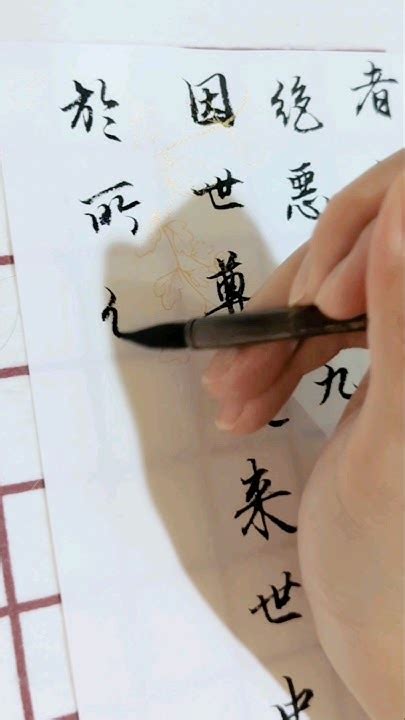 者
绝恶九
因世尊来世中
於所